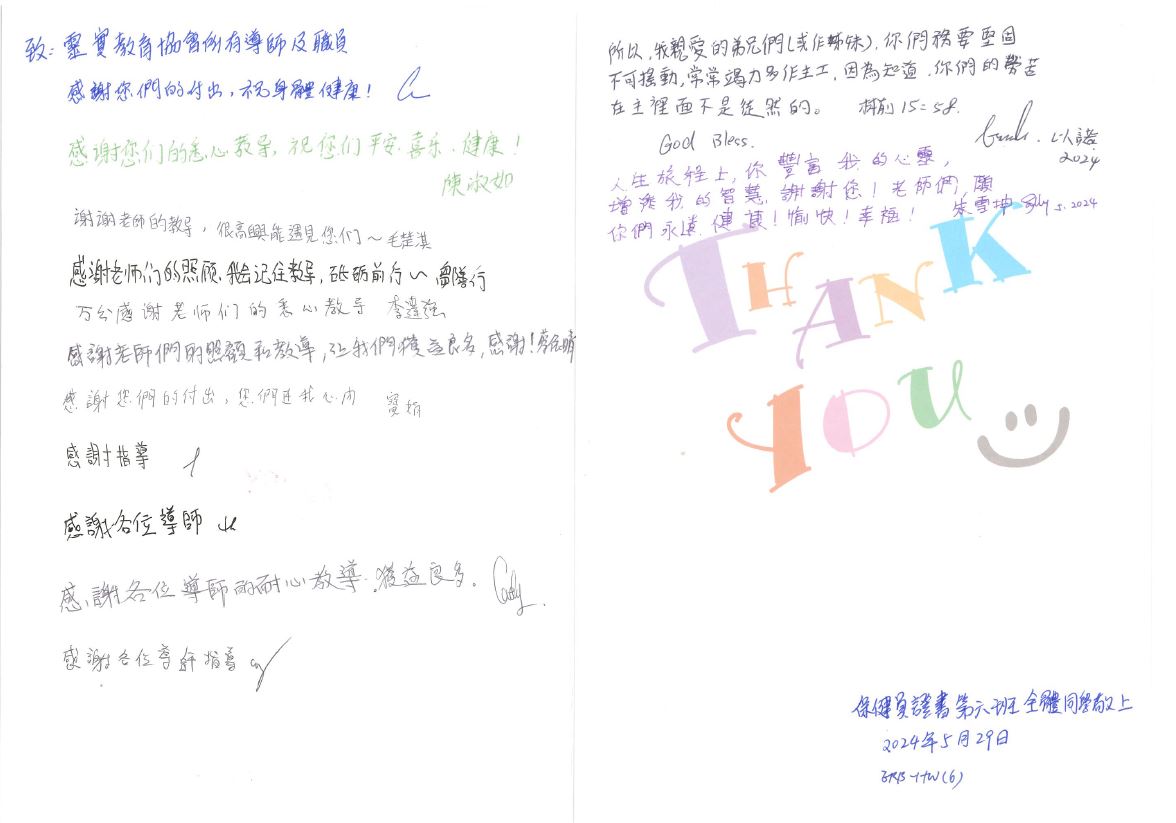 致：靈實教育協會所有導師及職員
感謝您們的付出，祝身體健康！
感谢您们的悉心教导，祝您们平安、喜乐、健康！
陳淑如
謝謝老師的教導，很高興能遇見您们～毛楚淇
感谢老师们的照顾，我会记住教导，砥砺前行～
万分感谢老师们的悉心教导
感謝老師們的照顧和教導，让我們獲益良多，感谢！
感謝您們的付出，您們在我心内
感謝指導
感謝各位導師
感謝各位導師的耐心教導，獲益良多。
感謝各位導師指導
所以，我親愛的弟兄們(或作姊妹)，你們務要堅固
不可搖動，常常竭力多作主工，因為知道，你們的勞苦
在主裡面不是徒然的。 林前15=58.
God Bless.
2024
人生旅程上，你豐富我的心靈，
增添我的智慧，謝謝您！老師們，願
你們永遠健康！愉快！幸福！ 朱雪坤
THANK
YOU
保健員證書第六班全體同學敬上
2024年5月29日
ERB-HW(6)